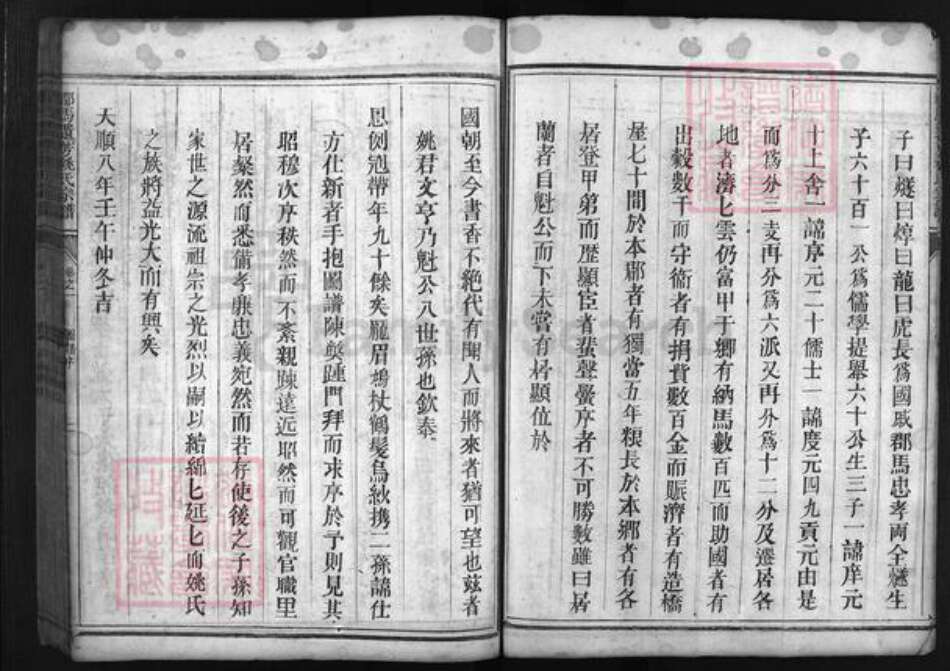 子曰燧曰焞曰龍曰虎長爲國戚郡馬忠孝兩全燧生
子六十百一公爲儒學提舉六十公生三子一諱庠元
十上舍一諱序元二十儒士一諱度元四九貢元由是
而爲分三支再分爲六派又再分爲十二分及遷居各
地者濟匕雲仍富甲于鄉有納馬數百匹而助國者有
出穀數千而守衛者有捐貲數百金而賑濟者有造橋
屋七十間於本郡者有獨當五年糧長於本鄉者有各
居登甲弟而歷顯宦者蜚聲黌序者不可勝數雖曰居
蘭者自魁公而下未嘗有居顯位於
國朝至今書香不絕代有聞人而將來者猶可望也茲者
姚君文亨乃魁公八世孫也欽泰
恩例冠帶年九十餘矣龐眉鳩杖鶴髮烏紗携二孫諱仕
方仕新者手抱圖譜陳奠踵門拜而求序於予則見其
昭穆次序秩然而不紊親踈遠近昭然而可觀官職里
居粲然而悉備孝亷忠義宛然而若存使後之子孫知
家世之源流祖宗之光烈以嗣以續綿匕延匕而姚氏
之族將益光大而有興矣
天順八年壬午仲冬吉